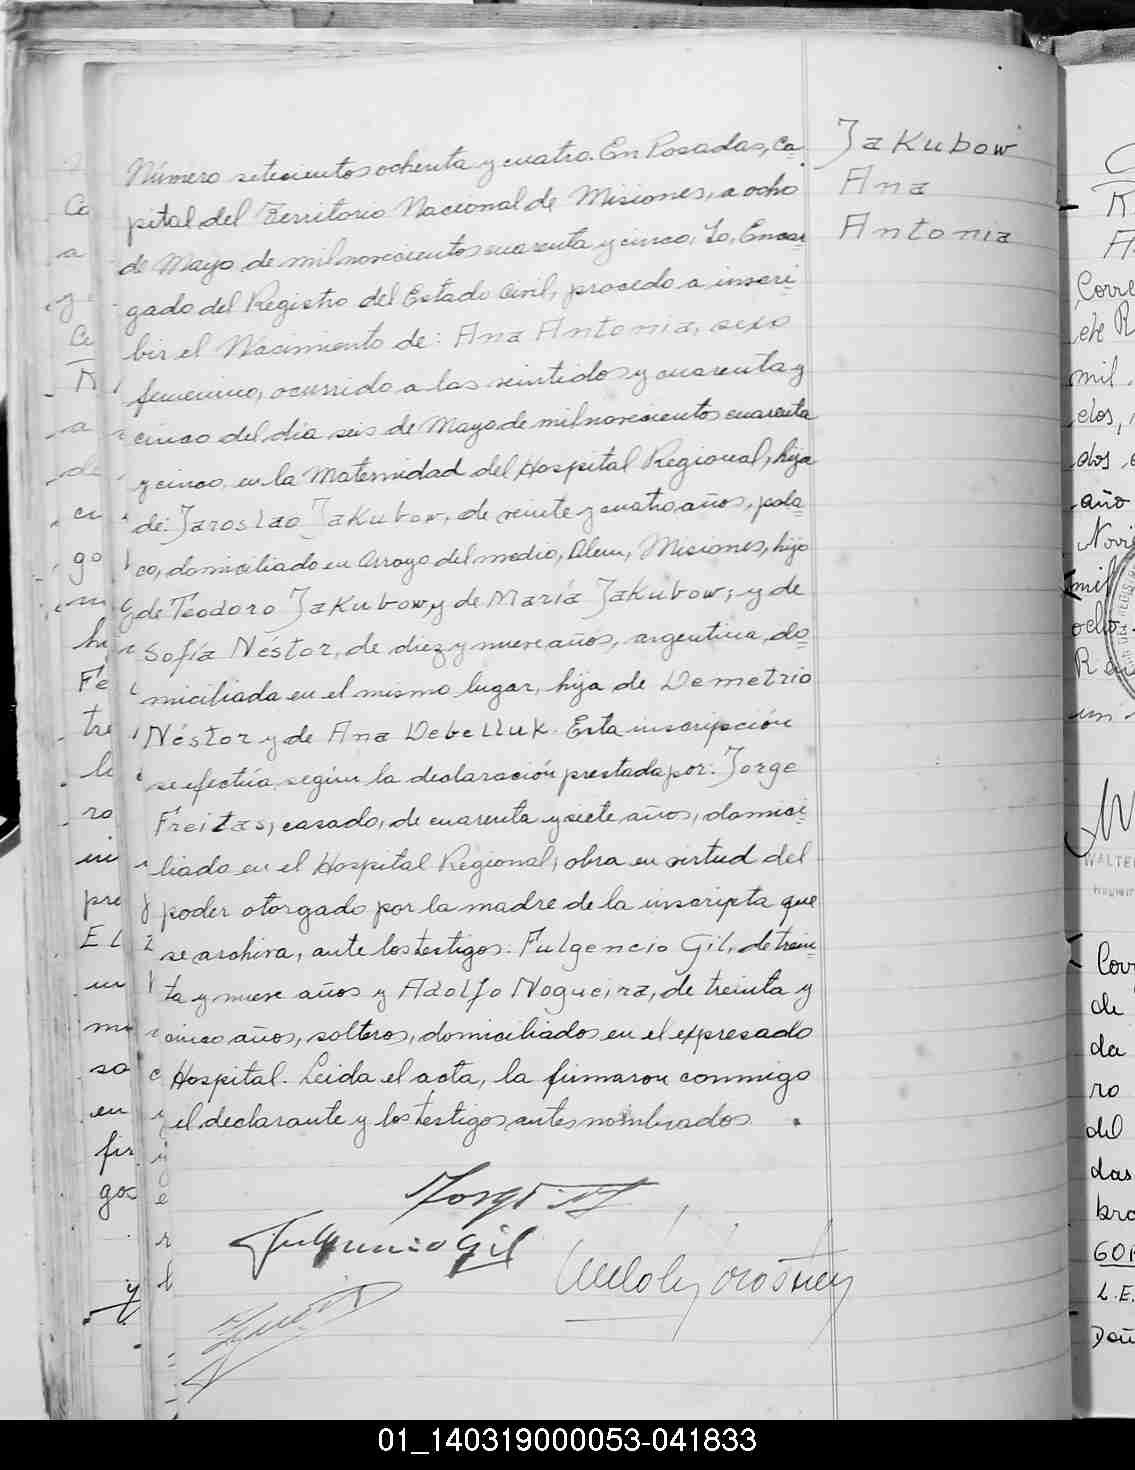 Número setecientos ochenta y cuatro. En Posadas, ca
pital del Territorio Nacional de Misiones, a ocho
de Mayo de mil novecientos cuarenta y cinco, Yo, Encar
gado del Registro del Estado Civil, procedo a inscri
bir el Nacimiento de: Ana Antonia, sexo
femenino, ocurrido a las veintidos y cuarenta y
cinco del dia seis de Mayo de mil novecientos cuarenta
y cinco, en la Maternidad del Hospital Regional, hija
de: Jaroslao Jakubow, de veinte y cuatro años, pola
co, domiciliado en Arroyo del medio, Alem, Misiones, hijo
de Teodoro Jakubow y de María Jakubow; y de
Sofía Néstor, de diez y nueve años, argentina, do
miciliada en el mismo lugar, hija de Demetrio
Néstor y de Ana Debelluk. Esta inscripción
se efectúa según la declaración prestada por: Jorge
Freitas, casado, de cuarenta y siete años, domici
liado en el Hospital Regional, obra en virtud del
poder otorgado por la madre de la inscripta que
se archiva, ante los testigos: Fulgencio Gil, de trein
ta y nueve años y Adolfo Nogueira, de treinta y
cinco años, solteros, domiciliados en el expresado
Hospital. Leida el acta, la firmaron conmigo
el declarante y los testigos antes nombrados.
Fulgencio Gil
Jakubow
Ana
Antonia
Ca
a
Ce
a
de
go
Fe
tre
ro
pre
El
so
en
fir
gos
y
Corre
mil
dos
año
Novie
mil
ocho
WALTE
Corr
de
da
ro
del
das
bra
GOR
L.E.
Doñ
01_140319000053-041833